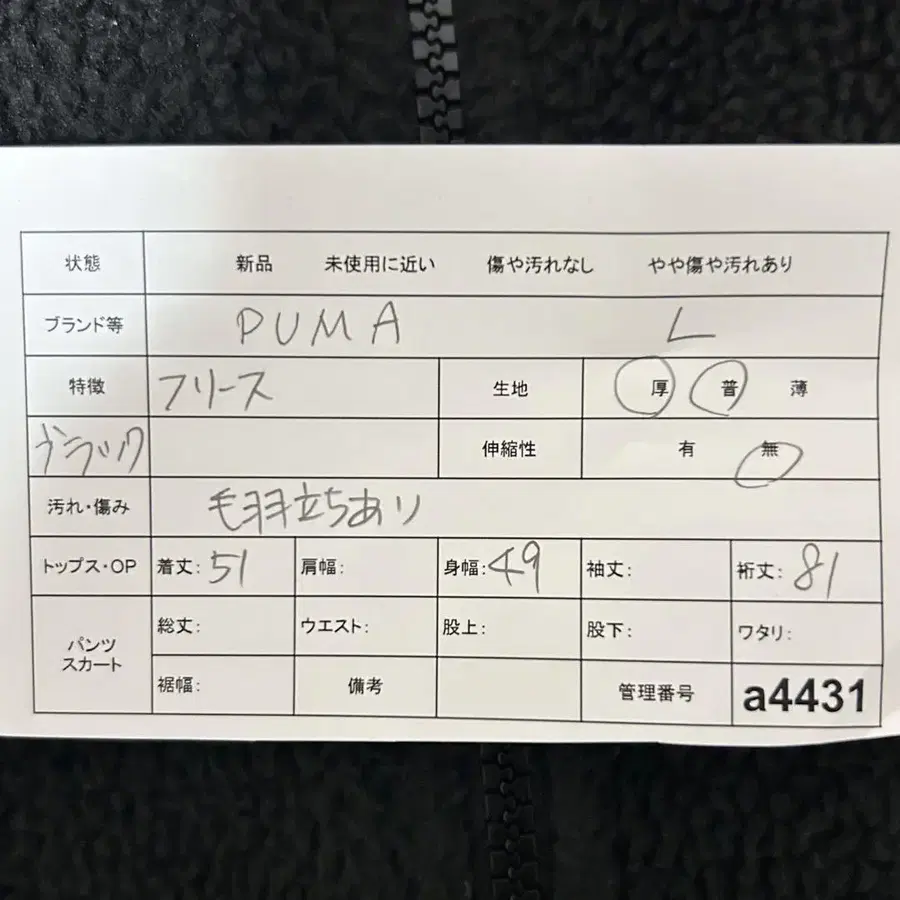 状態 新品 未使用に近い 傷や汚れなし やや傷や汚れあり
ブランド等 PUMA L
特徴 フリース 生地 厚 普 薄
ブラック 伸縮性 有 無
汚れ・傷み 毛羽立ちあり
トップス・OP 着丈: 51 肩幅: 身幅: 49 袖丈: 裄丈: 81
パンツ スカート 総丈: ウエスト: 股上: 股下: ワタリ:
裾幅: 備考 管理番号 a4431